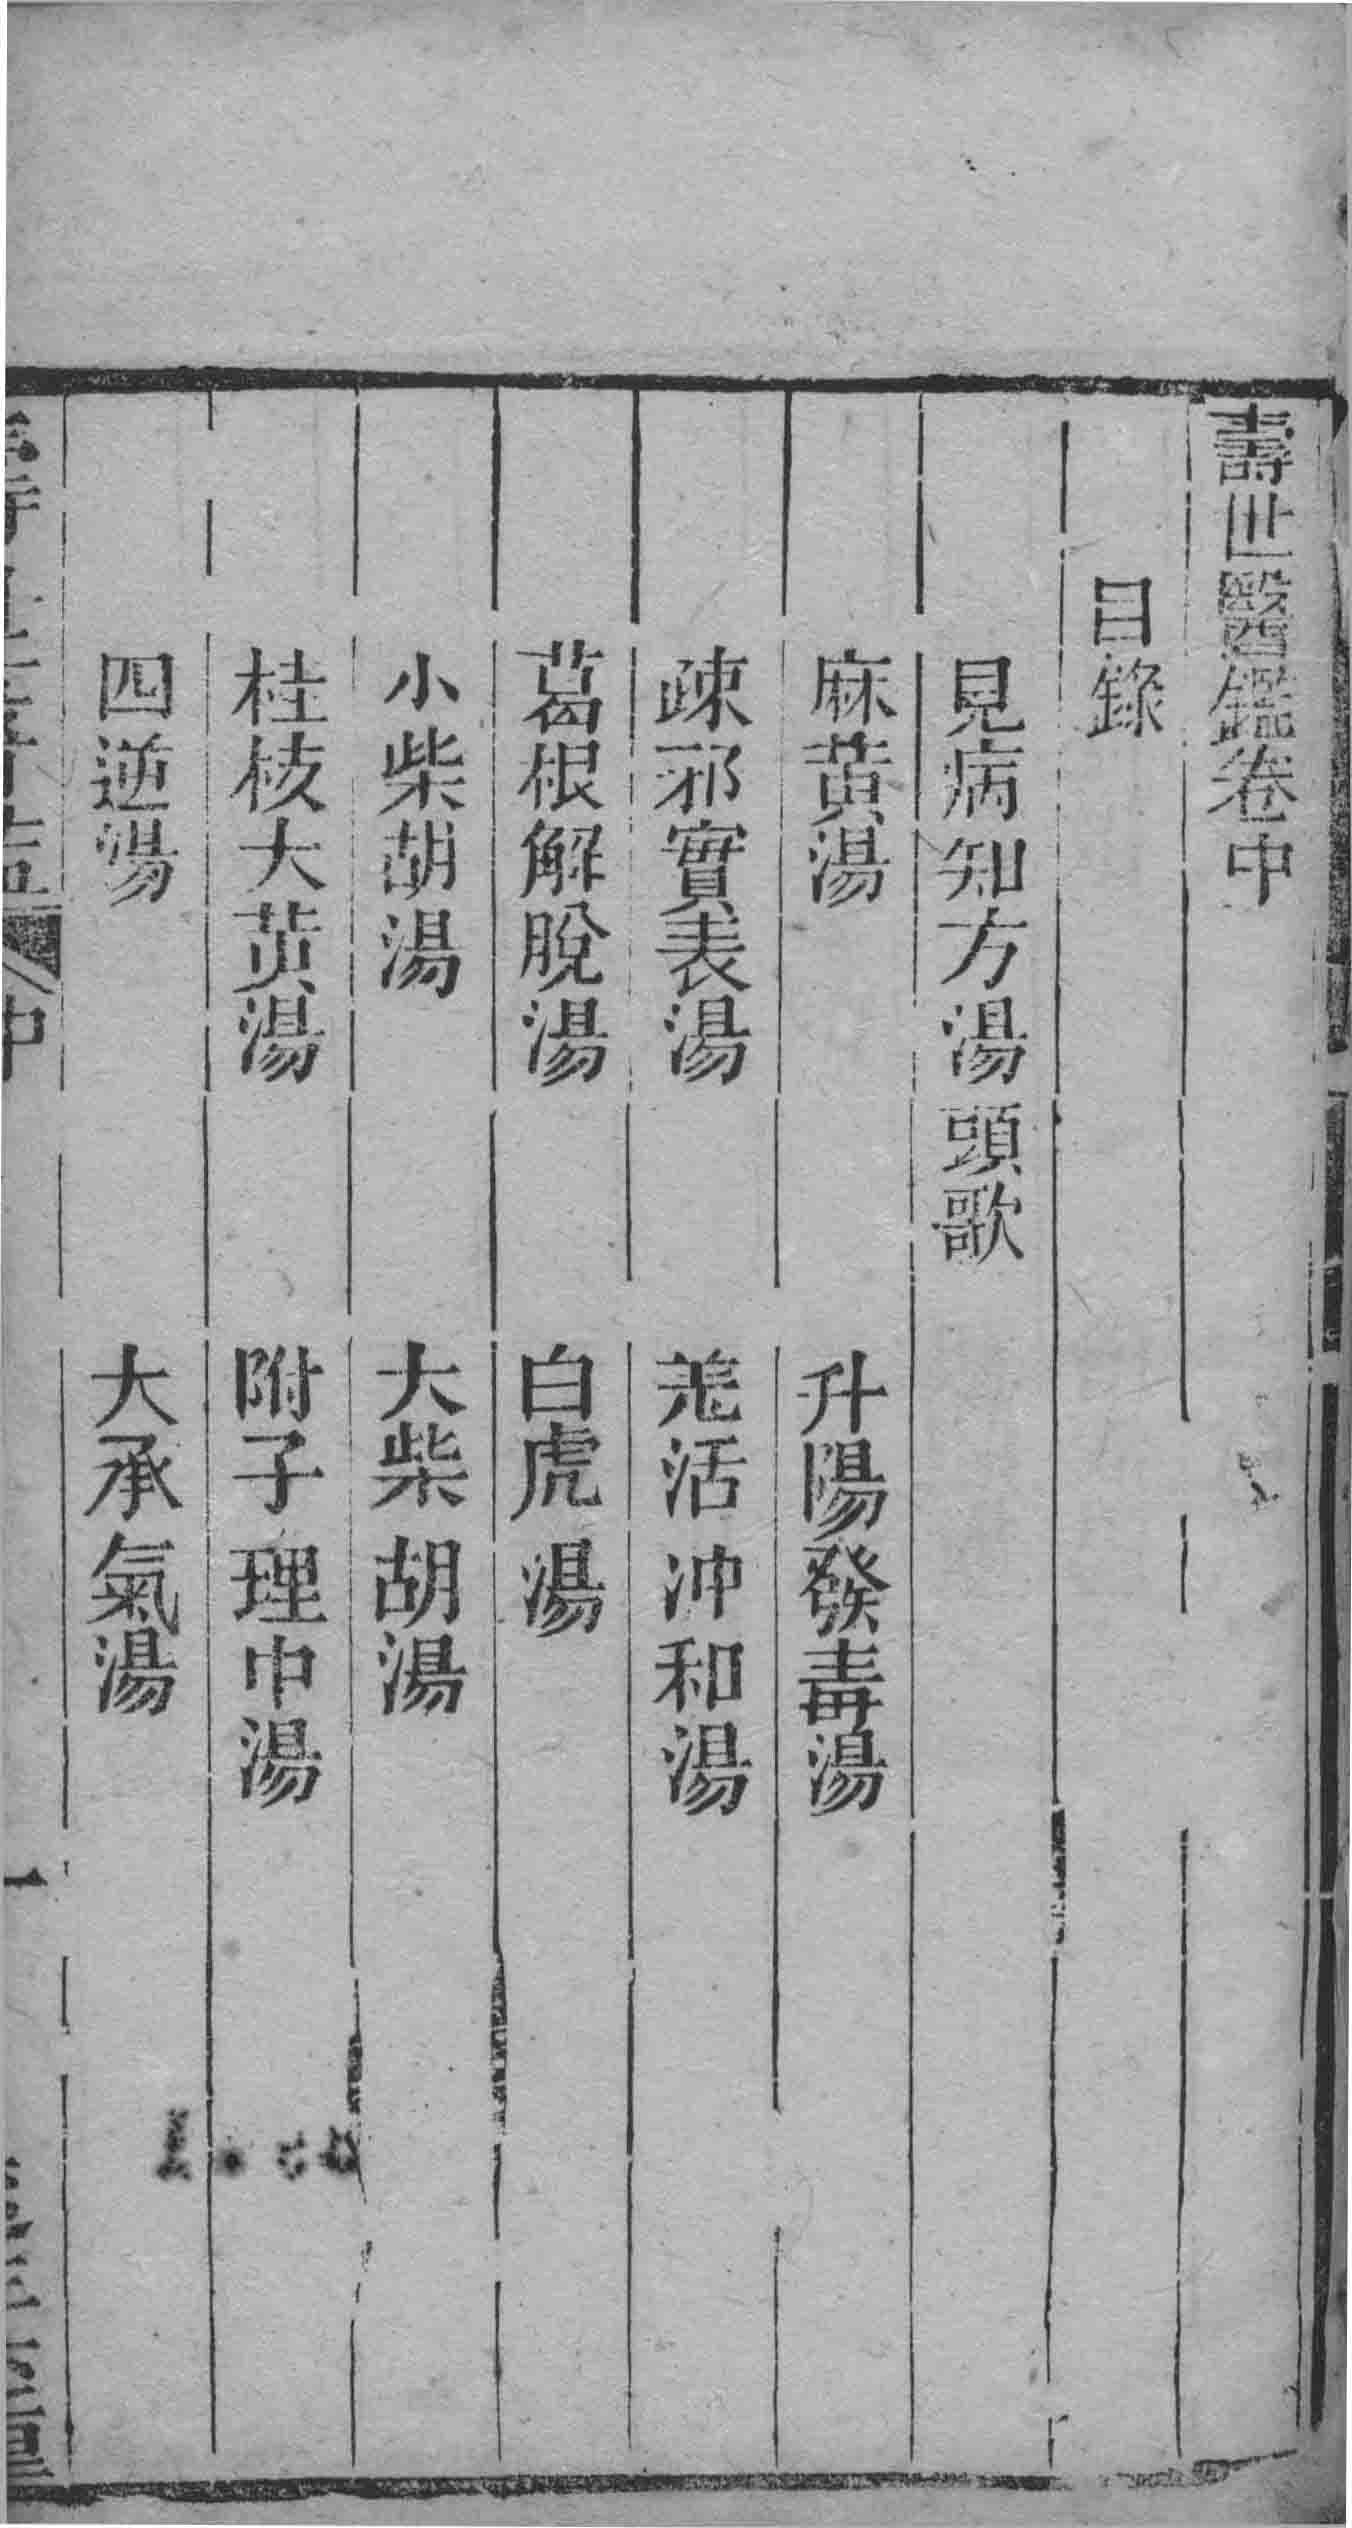 壽世醫鑑卷中
目錄
見病知方湯頭歌
麻黃湯
升陽發毒湯
疎邪實表湯
羌活沖和湯
葛根解脫湯
白虎湯
小柴胡湯
大柴胡湯
桂枝大黃湯
附子理中湯
四逆湯
大承氣湯
中
一